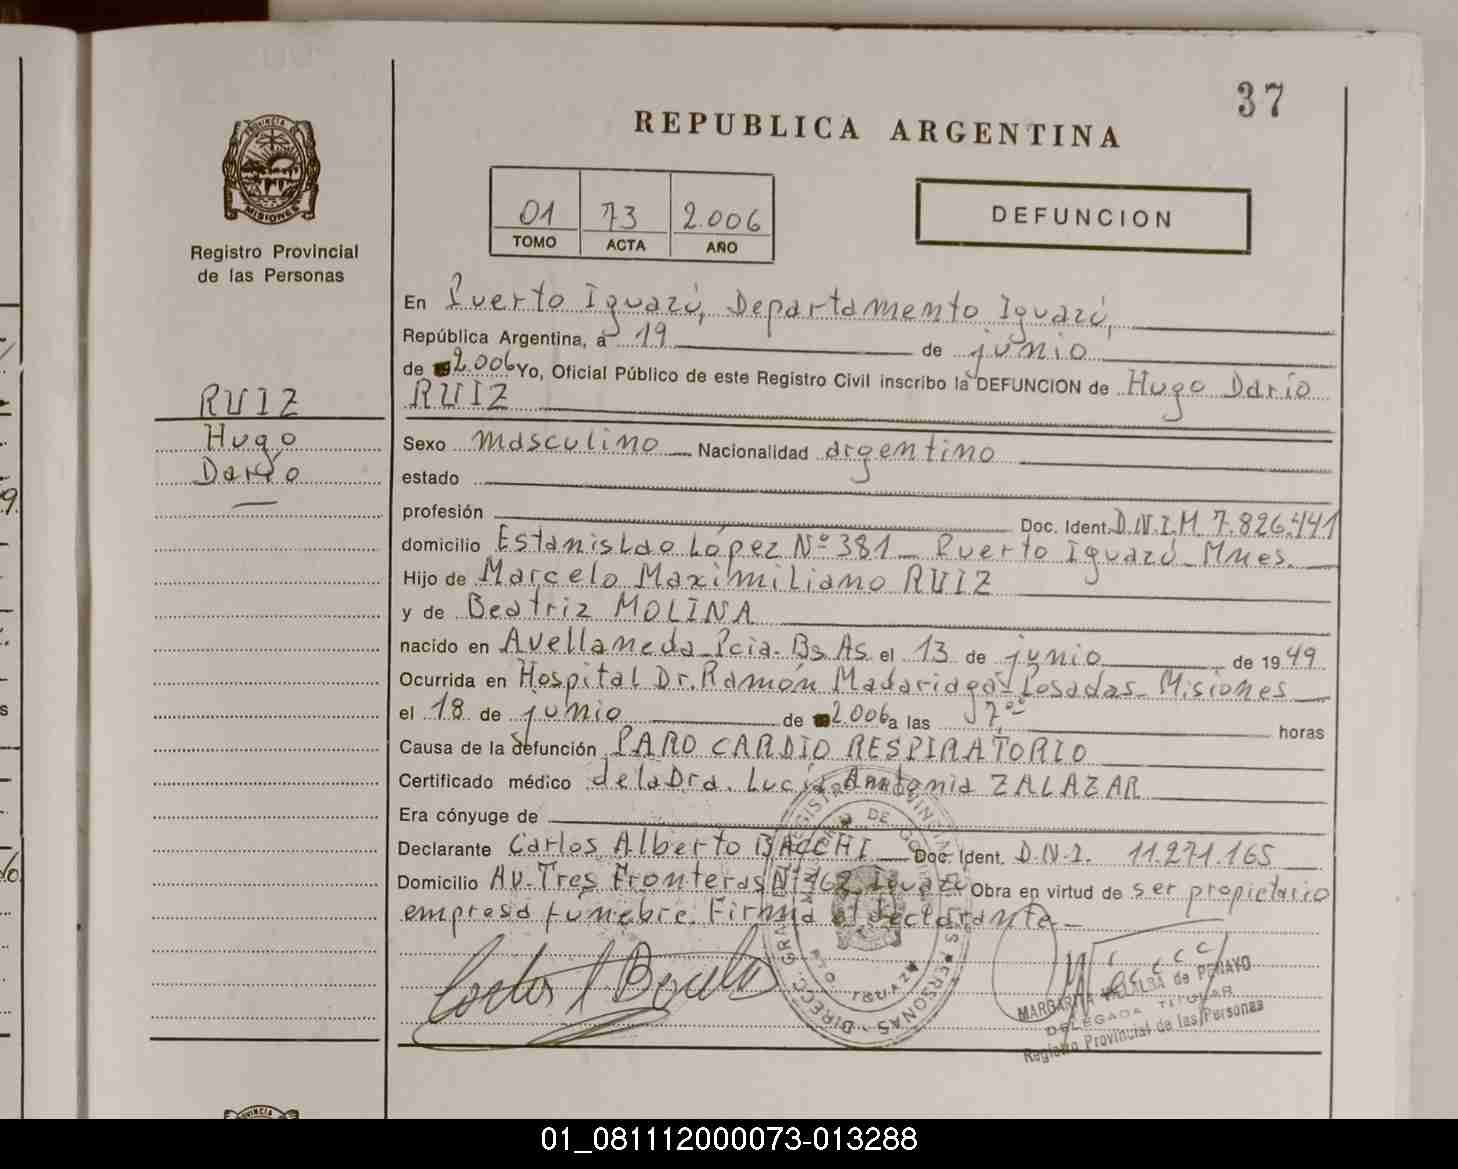 37
REPUBLICA ARGENTINA
PROVINCIA DE
MISIONES
Registro Provincial
de las Personas
01 73 2.006
TOMO ACTA AÑO
DEFUNCION
RUIZ
Hugo
Darío
En Puerto Iguazú, Departamento Iguazú,
República Argentina, a 19 de junio
de 2.006 Yo, Oficial Público de este Registro Civil inscribo la DEFUNCION de Hugo Darío
RUIZ
Sexo masculino Nacionalidad argentino
estado
profesión Doc. Ident. D.N.I.M 7.826.441
domicilio Estanislao López Nº 381 - Puerto Iguazú - Mnes.
Hijo de Marcelo Maximiliano RUIZ
y de Beatriz MOLINA
nacido en Avellaneda - Pcia. Bs As. el 13 de junio de 19 49
Ocurrida en Hospital Dr. Ramón Madariaga - Posadas - Misiones
el 18 de junio de 2.006 a las horas
Causa de la defunción PARO CARDIO RESPIRATORIO
Certificado médico de la Dra. Lucía Antonia ZALAZAR
Era cónyuge de
Declarante Carlos Alberto BACCHI Doc. Ident. D.N.I. 11.271.165
Domicilio Av. Tres Fronteras Nº 168 Iguazú Obra en virtud de ser propietario
empresa fúnebre. Firma el declarante -
MARGARITA VILLALBA de PENAYO
DELEGADA TITULAR
Registro Provincial de las Personas
01_081112000073-013288